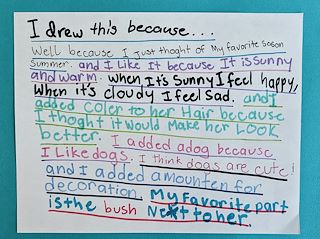 I drew this because...
Well because I Just thoght of My favorite Soson
Summer. and I Like It because It is Sunny
and warm. when It's Sunny I feel happy,
When it's cloudy I feel Sad. and I
added Coler to her Hair because
I thoght it Would Make her LOOK
better. I added adog because
I Like dogs. I think dogs are cute!
and I added amounten for
decoration. My favorite part
is the bush Next to her.